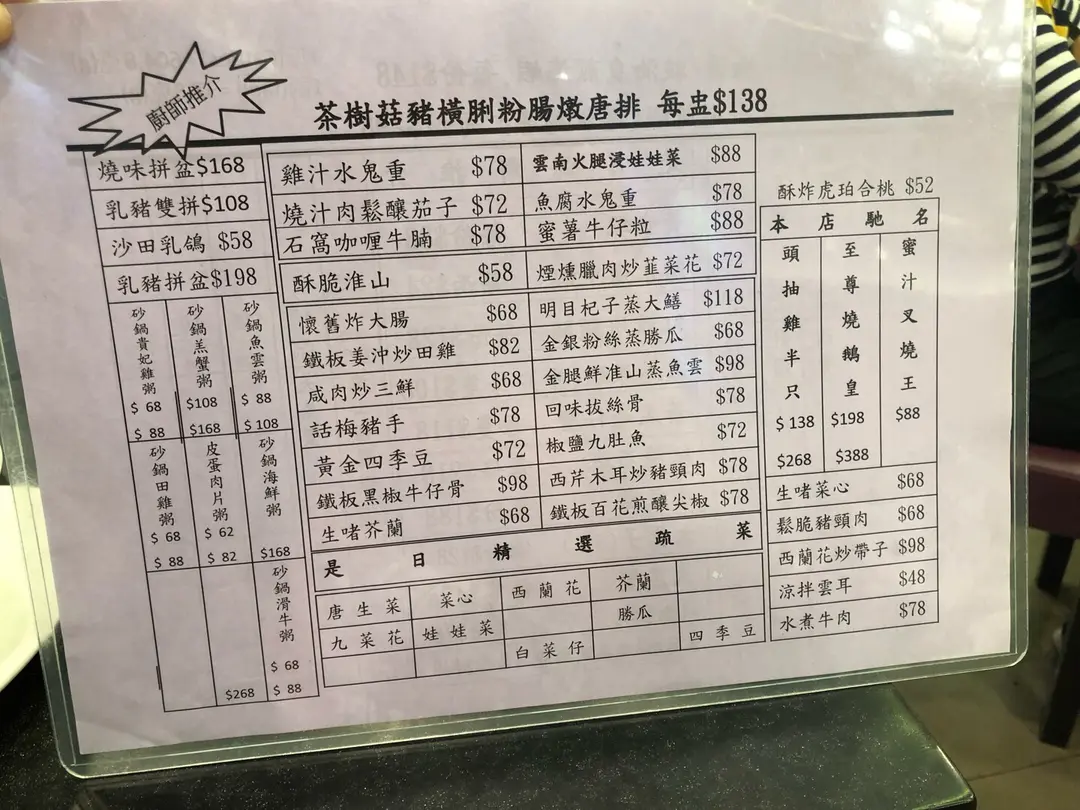 廚師推介
茶樹菇豬橫脷粉腸燉唐排 每盅$138
燒味拼盆$168
乳豬雙拼$108
沙田乳鴿 $58
乳豬拼盆$198
砂鍋貴妃雞粥 $ 68 $ 88
砂鍋羔蟹粥 $108 $168
砂鍋魚雲粥 $ 88 $ 108
砂鍋田雞粥 $ 68 $ 88
皮蛋肉片粥 $ 62 $ 82
砂鍋海鮮粥 $168
$268
砂鍋滑牛粥 $ 68 $ 88
雞汁水鬼重 $78
燒汁肉鬆釀茄子 $72
石窩咖喱牛腩 $78
酥脆淮山 $58
懷舊炸大腸 $68
鐵板姜沖炒田雞 $82
咸肉炒三鮮 $68
話梅豬手 $78
黃金四季豆 $72
鐵板黑椒牛仔骨 $98
生啫芥蘭 $68
雲南火腿浸娃娃菜 $88
魚腐水鬼重 $78
蜜薯牛仔粒 $88
煙燻臘肉炒韮菜花 $72
明目杞子蒸大鱔 $118
金銀粉絲蒸勝瓜 $68
金腿鮮淮山蒸魚雲 $98
回味拔絲骨 $78
椒鹽九肚魚 $72
西芹木耳炒豬頸肉 $78
鐵板百花煎釀尖椒 $78
是日精選疏菜
唐生菜 菜心 西蘭花 芥蘭
九菜花 娃娃菜 勝瓜
白菜仔 四季豆
酥炸虎珀合桃 $52
本店馳名
頭抽雞半只 $ 138 $268
至尊燒鵝皇 $198 $388
蜜汁叉燒王 $88
生啫菜心 $68
鬆脆豬頸肉 $68
西蘭花炒帶子 $98
涼拌雲耳 $48
水煮牛肉 $78